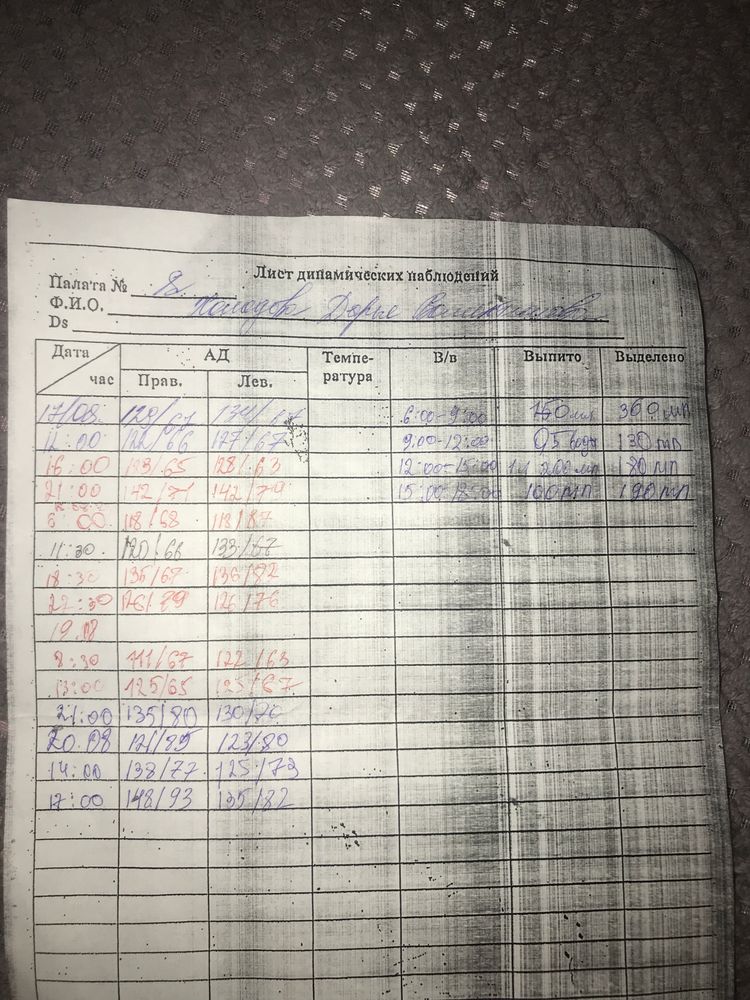 Лист динамических наблюдений
Палата № 8
Ф.И.О. Дарья
Ds
Дата час АД Прав. Лев. Температура В/в Выпито Выделено
17/08 129/67 134/ 6:00-9:00 150 мл 360 мл
12:00 122/66 127/67 9:00-12:00 0,5 воды 130 мл
16:00 123/65 128/63 12:00-15:00 1л 200 мл 180 мл
21:00 142/71 142/79 15:00-18:00 100 мл 190 мл
6:00 118/68 118/87
11:30 120/66 133/67
18:30 135/67 136/82
22:30 126/79 126/76
19.08
8:30 111/67 122/63
13:00 125/65 125/67
21:00 135/80 130/70
20.08 121/85 123/80
14:00 138/77 125/73
17:00 148/93 135/82